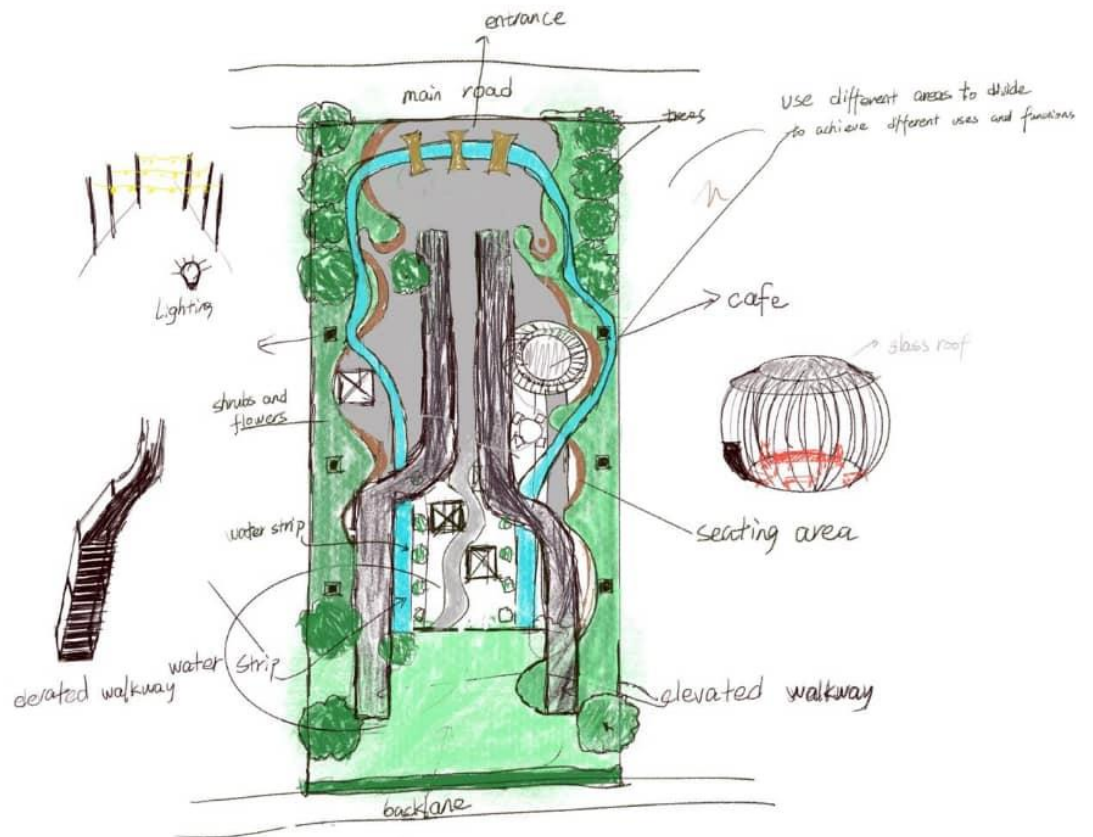 entrance
main road
trees
use different areas to divide
to achieve different uses and functions
Lighting
cafe
glass roof
shrubs and
flowers
water strip
seating area
water strip
elevated walkway
elevated walkway
backlane